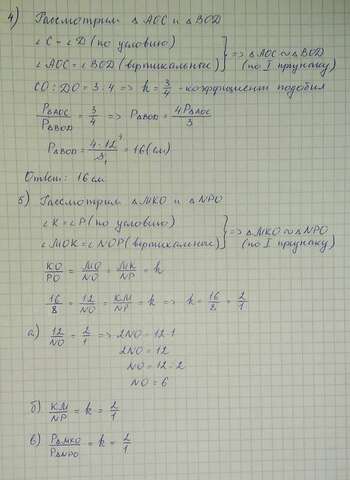 4) Рассмотрим △AOC и △BOD
∠C = ∠D (по условию)
∠AOC = ∠BOD (вертикальные) } => △AOC ~ △BOD (по I признаку)
CO : DO = 3 : 4 => k = 3/4 - коэффициент подобия
P△AOC / P△BOD = 3/4 => P△BOD = 4P△AOC / 3
P△BOD = 4 · 12⁴ / 3₁ = 16 (см)
Ответ: 16 см
5) Рассмотрим △MKO и △NPO
∠K = ∠P (по условию)
∠MOK = ∠NOP (вертикальные) } => △MKO ~ △NPO (по I признаку)
KO/PO = MO/NO = MK/NP = k
16/8 = 12/NO = KM/NP = k => k = 16/8 = 2/1
а) 12/NO = 2/1 => 2NO = 12 · 1
2NO = 12
NO = 12 : 2
NO = 6
б) KM/NP = k = 2/1
в) P△MKO / P△NPO = k = 2/1